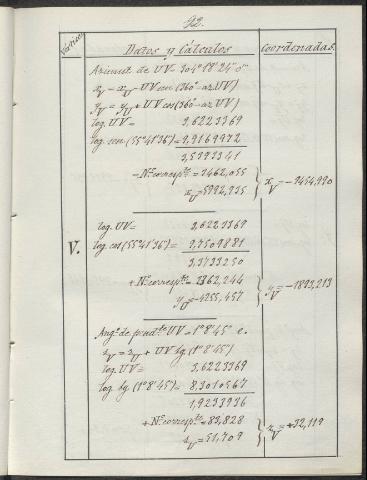 92.
Vértices Datos y Cálculos Coordenadas.
Azimut de UV = 304° 18' 24" 0
x_V = x_U - UV sen (360° - az. UV)
y_V = y_U + UV cos (360° - az. UV)
log. UV = 3,6223369
log. sen (55° 41' 36") = 9,9169972
3,5393341
- N.º corresp.te = 3462,055
x_U = 5992,935
x_V = -9454,990
V.
log. UV = 3,6223369
log. cos (55° 41' 36") = 9,7509881
3,3733250
+ N.º corresp.te = 2362,244
y_U = -4255,457
y_V = -1893,213
Ang.º de pend.te UV = 1° 8' 45" e.
z_V = z_U + UV tg. (1° 8' 45")
log. UV = 3,6223369
log. tg. (1° 8' 45") = 8,3010567
1,9233936
+ N.º corresp.te = 83,828
z_U = 51,709
z_V = +32,119